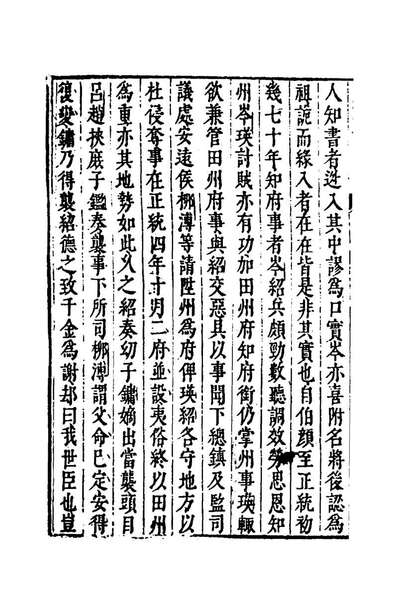 人知書者迯入其中謬為口實岑亦喜附名將後認為
祖說而緣入者在在皆是非其實也自伯顏至正統初
幾七十年知府事者岑紹兵頗勁數聽調效勞思恩知
州岑瑛計賊亦有功加田州府知府銜仍掌州事瑛輙
欲兼管田州府事與紹交惡具以事聞下總鎮及監司
議處安遠侯柳溥等請陞州為府俾瑛紹各守地方以
杜侵奪事在正統四年十月二府並設夷俗終以田州
為重亦其地勢如此久之紹奏幼子鏞嫡出當襲頭目
呂趙挾庶子鑑奏襲事下所司柳溥謂父命已定安得
復變鏞乃得襲紹德之致千金為謝却曰我世臣也豈